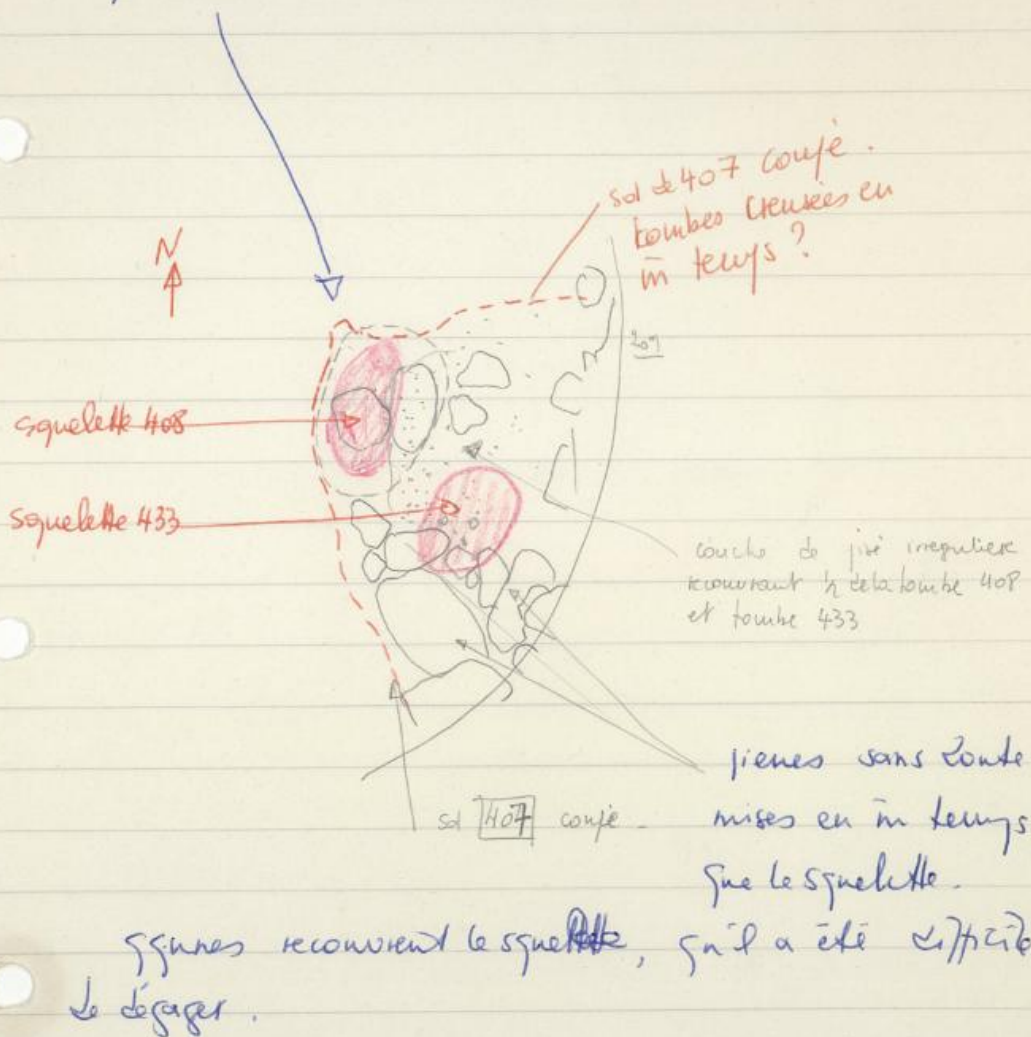 sol de 407 coupé.
tombes creusées en
m̄ temps ?
N
squelette 408
squelette 433
couche de pisé irrégulière
recouvrant ½ de la tombe 408
et tombe 433
sol 407 coupé.
pierres sans doute
mises en m̄ temps
que le squelette.
qqunes recouvrent le squelette, qu'il a été difficile
de dégager.